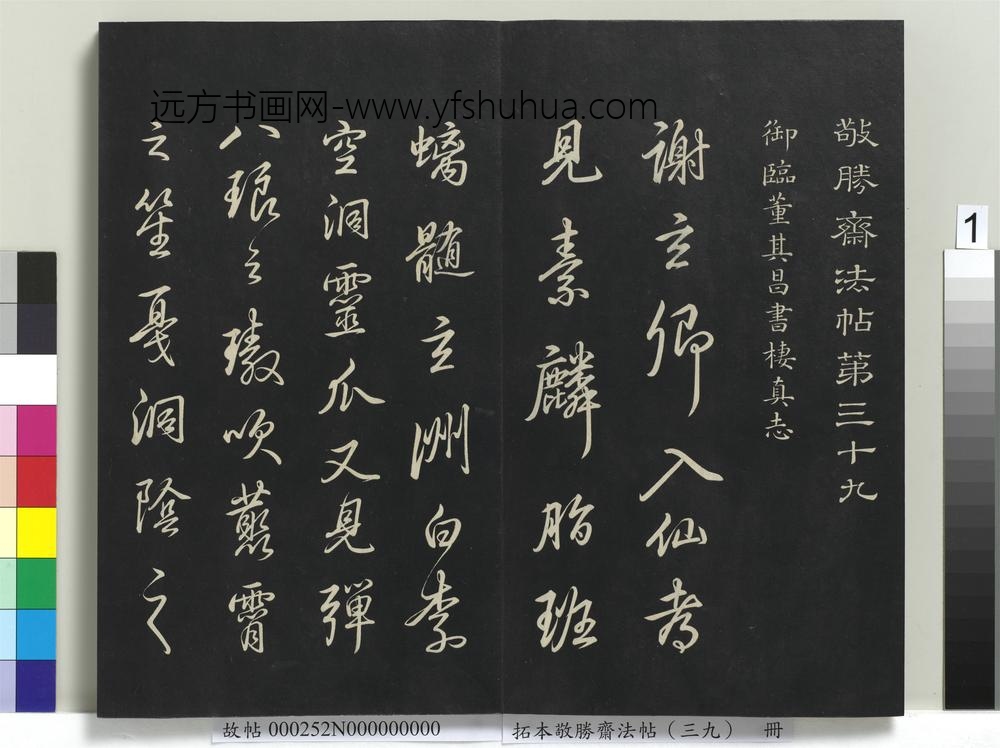 远方书画网-www.yfshuhua.com
敬勝齋法帖苐三十九
御臨董其昌書棲真志
謝玄卿入仙考
見素麟脂班
螭髓玄洲白李
空洞靈瓜又見彈
八琅之璈吹叢霄
之笙戛洞陰之
1
故帖 000252N000000000
拓本敬勝齋法帖（三九） 冊